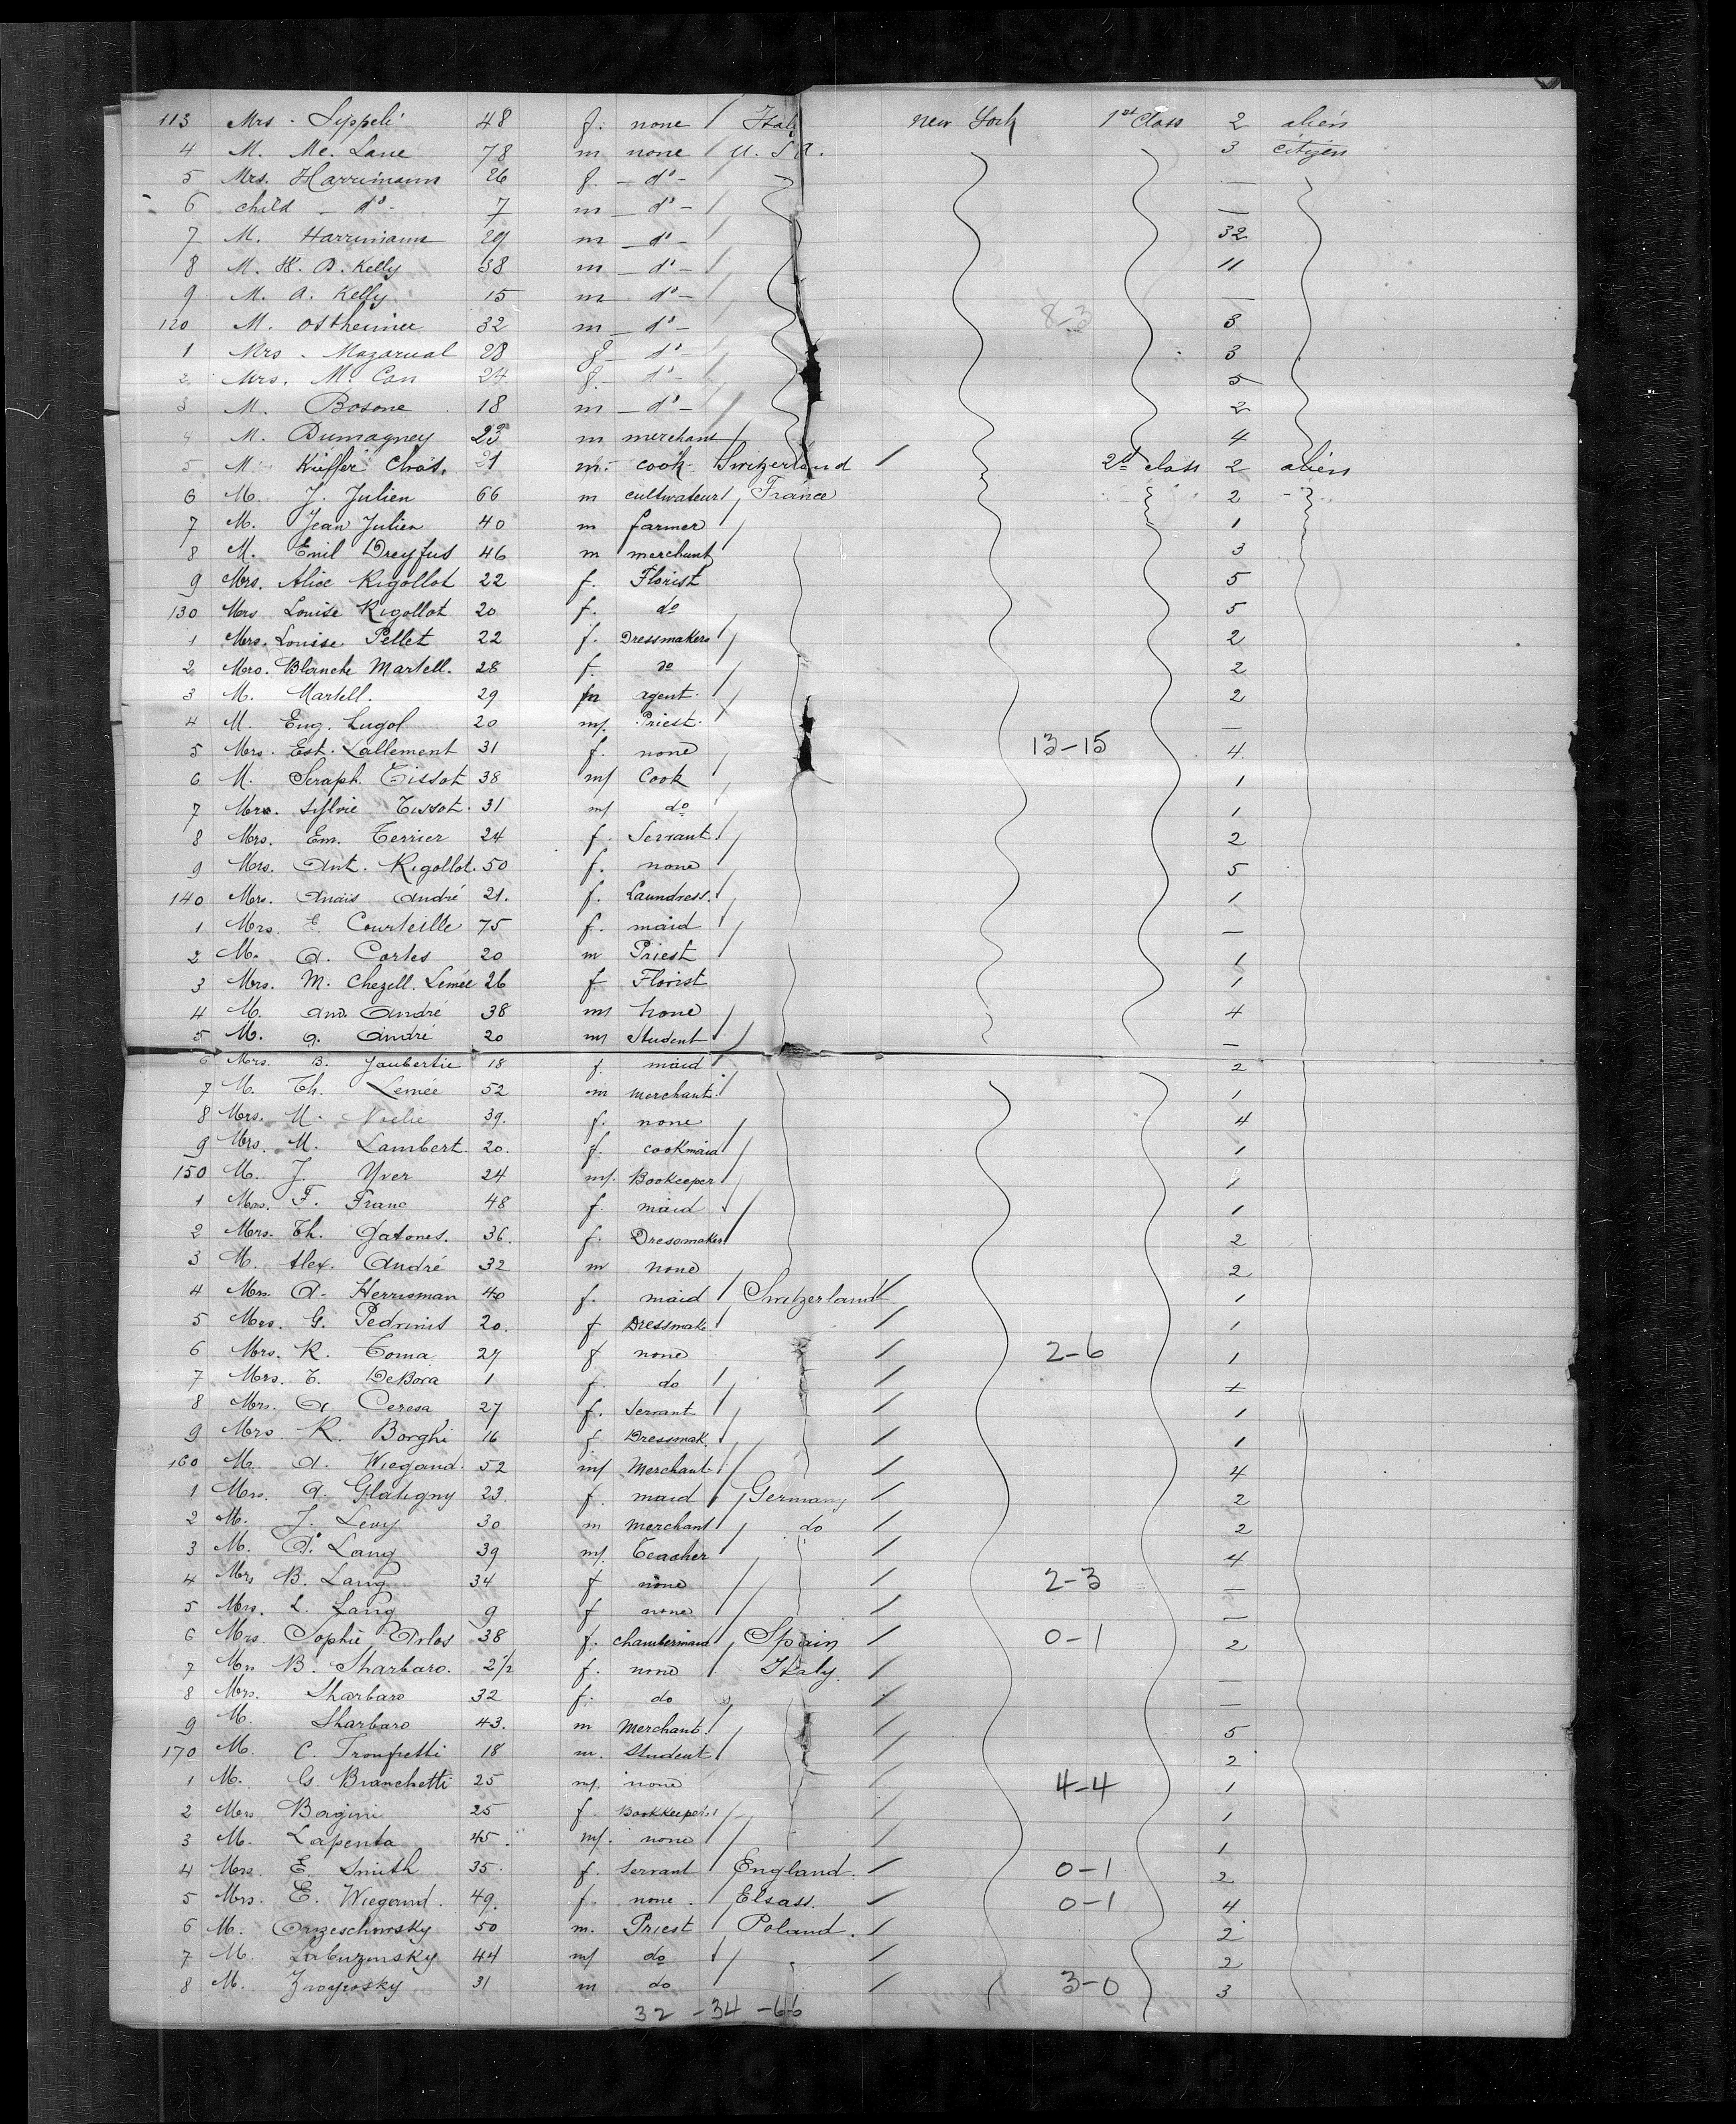 113 Mrs. Sippeli 48 f. none / Italy New York 1st Class 2 alien
4 M. Mc. Lane 78 m none / U. S. A. 3 citizen
5 Mrs. Harrimann 26 f. - do - / —
6 child - do - 7 m - do - / —
7 M. Harrimann 29 m - do - / 32
8 M. H. B. Kelly 38 m - do - / 11
9 M. A. Kelly 15 m do - / —
120 M. Ostheimer 32 m - do - / 8-3 3
1 Mrs. Mazarual 28 f - do - 3
2 Mrs. Mc Can 24 f. - do - 5
3 M. Bosone 18 m - do - / 2
4 M. Dumagney 23 m merchant / 4
5 M. Kieffer Chrs. 21 m. cook Switzerland / 2d class 2 alien
6 M. J. Julien 66 m cultivateur / France 2
7 M. Jean Julien 40 m farmer / 1
8 M. Emil Dreyfus 46 m merchant 3
9 Mrs. Alice Rigollot 22 f. Florist 5
130 Mrs Louise Rigollot 20 f. do 5
1 Mrs. Louise Pellet 22 f. Dressmakers / 2
2 Mrs. Blanche Martell. 28 f. do 2
3 M. Martell. 29 m agent. / 2
4 M. Eug. Lugol 20 m. Priest. / —
5 Mrs. Est. Lallement 31 f. none 13-15 4.
6 M. Seraph. Tissot 38 m Cook / 1
7 Mrs. Sylvie Tissot. 31 m do / 1
8 Mrs. Em. Terrier 24 f. Servant / 2
9 Mrs. Ant. Rigollot. 50 f. none / 5
140 Mrs. Anaïs André 21. f. Laundress. / 1
1 Mrs. E Courteille 75 f. maid / —
2 M. A. Cortes 20 m Priest / 1
3 Mrs. M. Chezell. Lemée 26 f Florist 1
4 M. And. André 38 m none / 4
5 M. A. André 20 m Student / —
6 Mrs. B. Jaubertie 18 f. maid / 2
7 M. Th. Lemée 52 m merchant. / 1
8 Mrs. M. 39. f. none / 4
9 Mrs. M. Lambert. 20. f. cookmaid / 1
150 M. J. Yver 24 m. Bookeeper / 1
1 Mrs. F. Franc 48 f. maid / 1
2 Mrs. Th. Gatones. 36. f. Dressmaker 2
3 M. Alex. André 32 m none 2
4 Mrs. A. Herrisman 40 f. maid / Switzerland / 1
5 Mrs. G. Pedrinis 20. f Dressmak. / / 1
6 Mrs. R. Toma 27 f none / 2-6 1
7 Mrs. T. DeBora 1 f. do / / 1
8 Mrs. A. Ceresa 27 f. Servant / / 1
9 Mrs R. Borghi 16 f. Dressmak. / / 1
160 M. A. Wiegand. 52 m Merchant. / / 4
1 Mrs. A. Glatigny 23. f. maid / Germany / 2
2 M. J. Levy 30 m merchant / do / 2
3 M. A. Lang 39 m. Teacher / / 4
4 Mrs B. Lang 34 f none / / 2-3 —
5 Mrs. L. Lang 9 f none / / —
6 Mrs Sophie Arlos 38 f. Chambermaid / Spain / 0-1 2
7 Mrs B. Sharbaro. 2 1/2 f. none / Italy /
8 Mrs. Sharbaro 32 f. do / —
9 M. Sharbaro 43. m Merchant. / / 5
170 M. C. Tronfretti 18 m. Student / / 2
1 M. G Branchetti 25 m. none / 4-4 1
2 Mrs Borgini 25 f. Bookkeeper. / / 1
3 M. Lapenta 45. m. none / / 1
4 Mrs. E. Smith 35. f. Servant / England. / 0-1 2
5 Mrs. E. Wiegand. 49. f. none. / Elsass. / 0-1 4
6 M. Orzeschowsky 50 m. Priest / Poland. / 2
7 M. Labuzinsky 44 m do / / 2
8 M. 31 m do / / 3-0 3
32 - 34 - 66